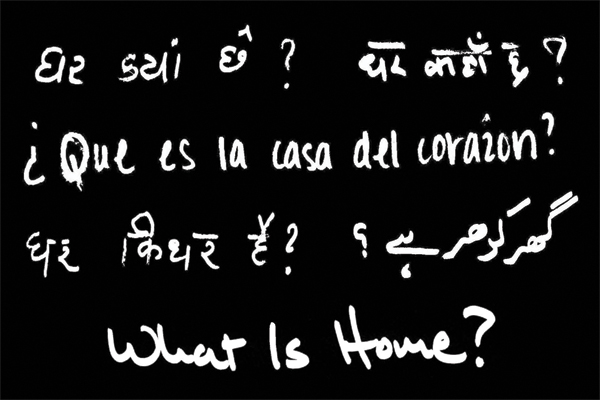 ઘર કયાં છે ? घर कहाँ है ?
¿Que es la casa del corazón?
घर किधर है? گھر کدھر ہے ؟
What Is Home?